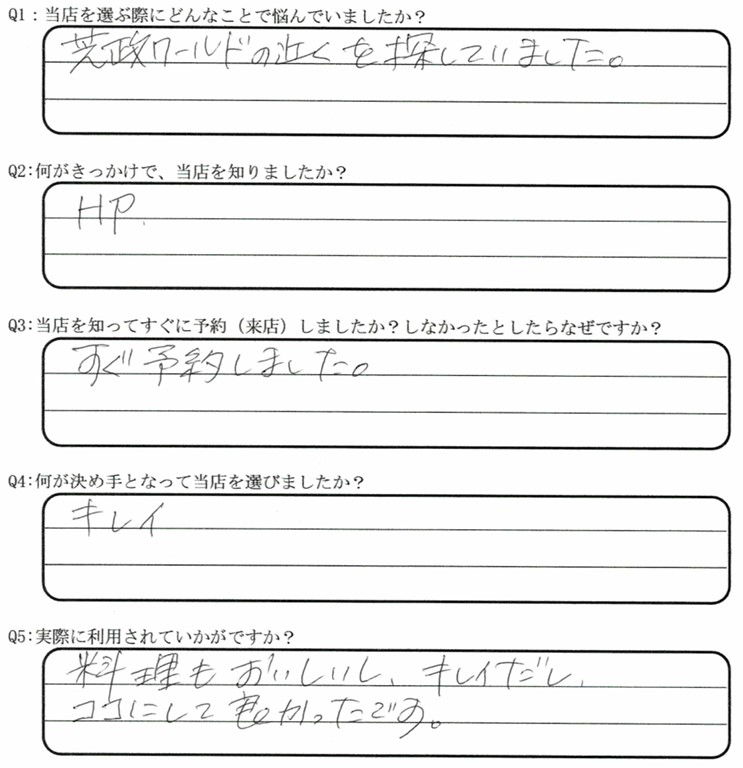 Q1：当店を選ぶ際にどんなことで悩んでいましたか？
芝政ワールドの近くを探していました。
Q2：何がきっかけで、当店を知りましたか？
HP.
Q3：当店を知ってすぐに予約（来店）しましたか？しなかったとしたらなぜですか？
すぐ予約しました。
Q4：何が決め手となって当店を選びましたか？
キレイ
Q5：実際に利用されていかがですか？
料理もおいしいし、キレイだし、
ココにして良かったです。